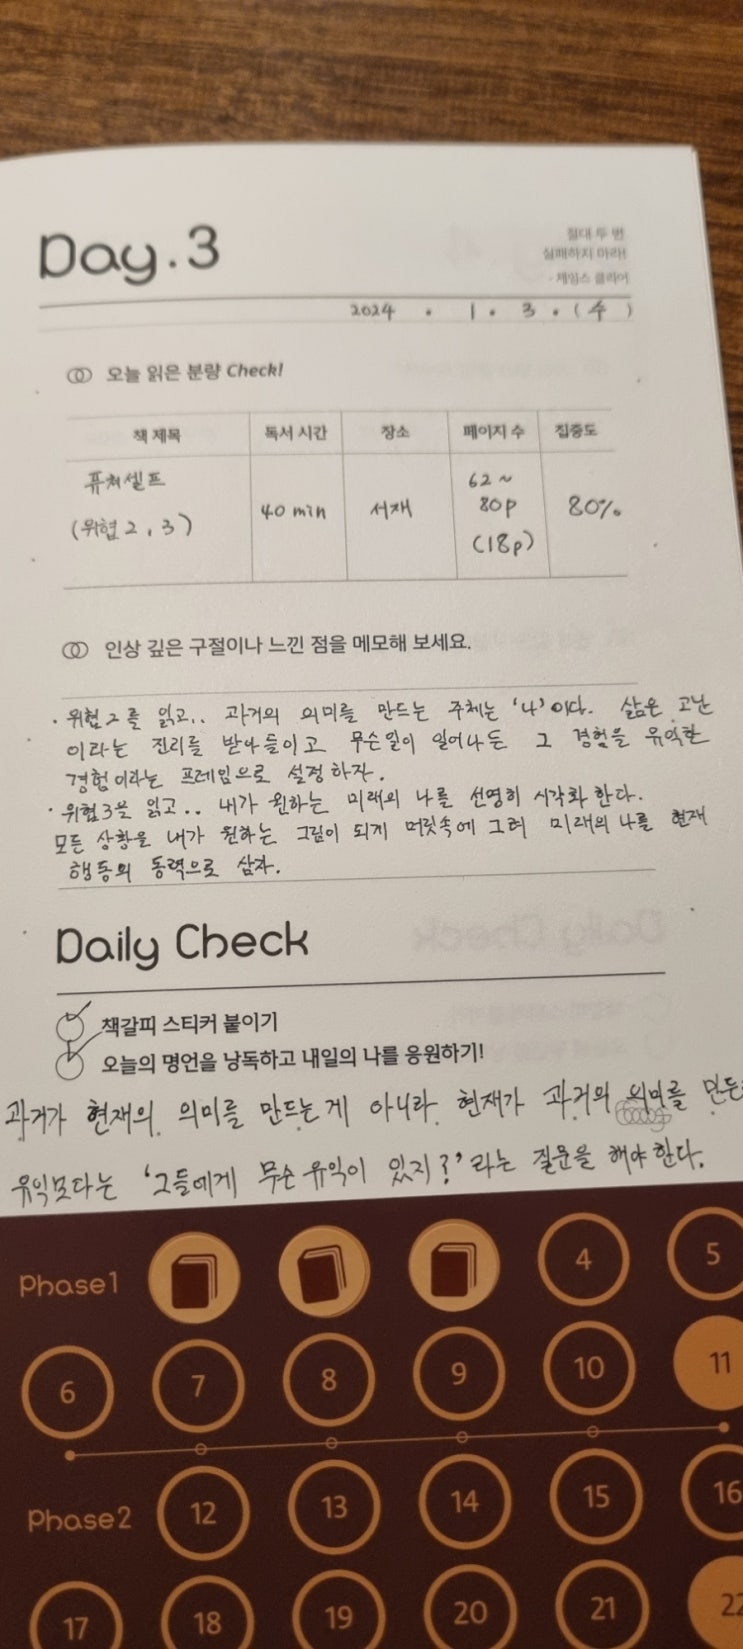 Day.3
절대 두 번
실패하지 마라!
- 제임스 클리어
2024 . 1 . 3 . (수)
오늘 읽은 분량 Check!
책 제목 독서 시간 장소 페이지 수 집중도
퓨처셀프
(위협 2, 3)
40 min
서재
62 ~
80p
(18p)
80%
인상 깊은 구절이나 느낀 점을 메모해 보세요.
· 위협 2를 읽고.. 과거의 의미를 만드는 주체는 '나'이다. 삶은 고난
이라는 진리를 받아들이고 무슨일이 일어나든 그 경험을 유익한
경험이라는 프레임으로 설정하자.
· 위협3을 읽고.. 내가 원하는 미래의 나를 선명히 시각화 한다.
모든 상황을 내가 원하는 그림이 되게 머릿속에 그려 미래의 나를 현재
행동의 동력으로 삼자.
Daily Check
책갈피 스티커 붙이기
오늘의 명언을 낭독하고 내일의 나를 응원하기!
과거가 현재의 의미를 만드는게 아니라 현재가 과거의 의미를 만든
유익보다는 '그들에게 무슨 유익이 있지?'라는 질문을 해야 한다.
Phase1 4 5
6 7 8 9 10 11
Phase2 12 13 14 15 16
17 18 19 20 21 22